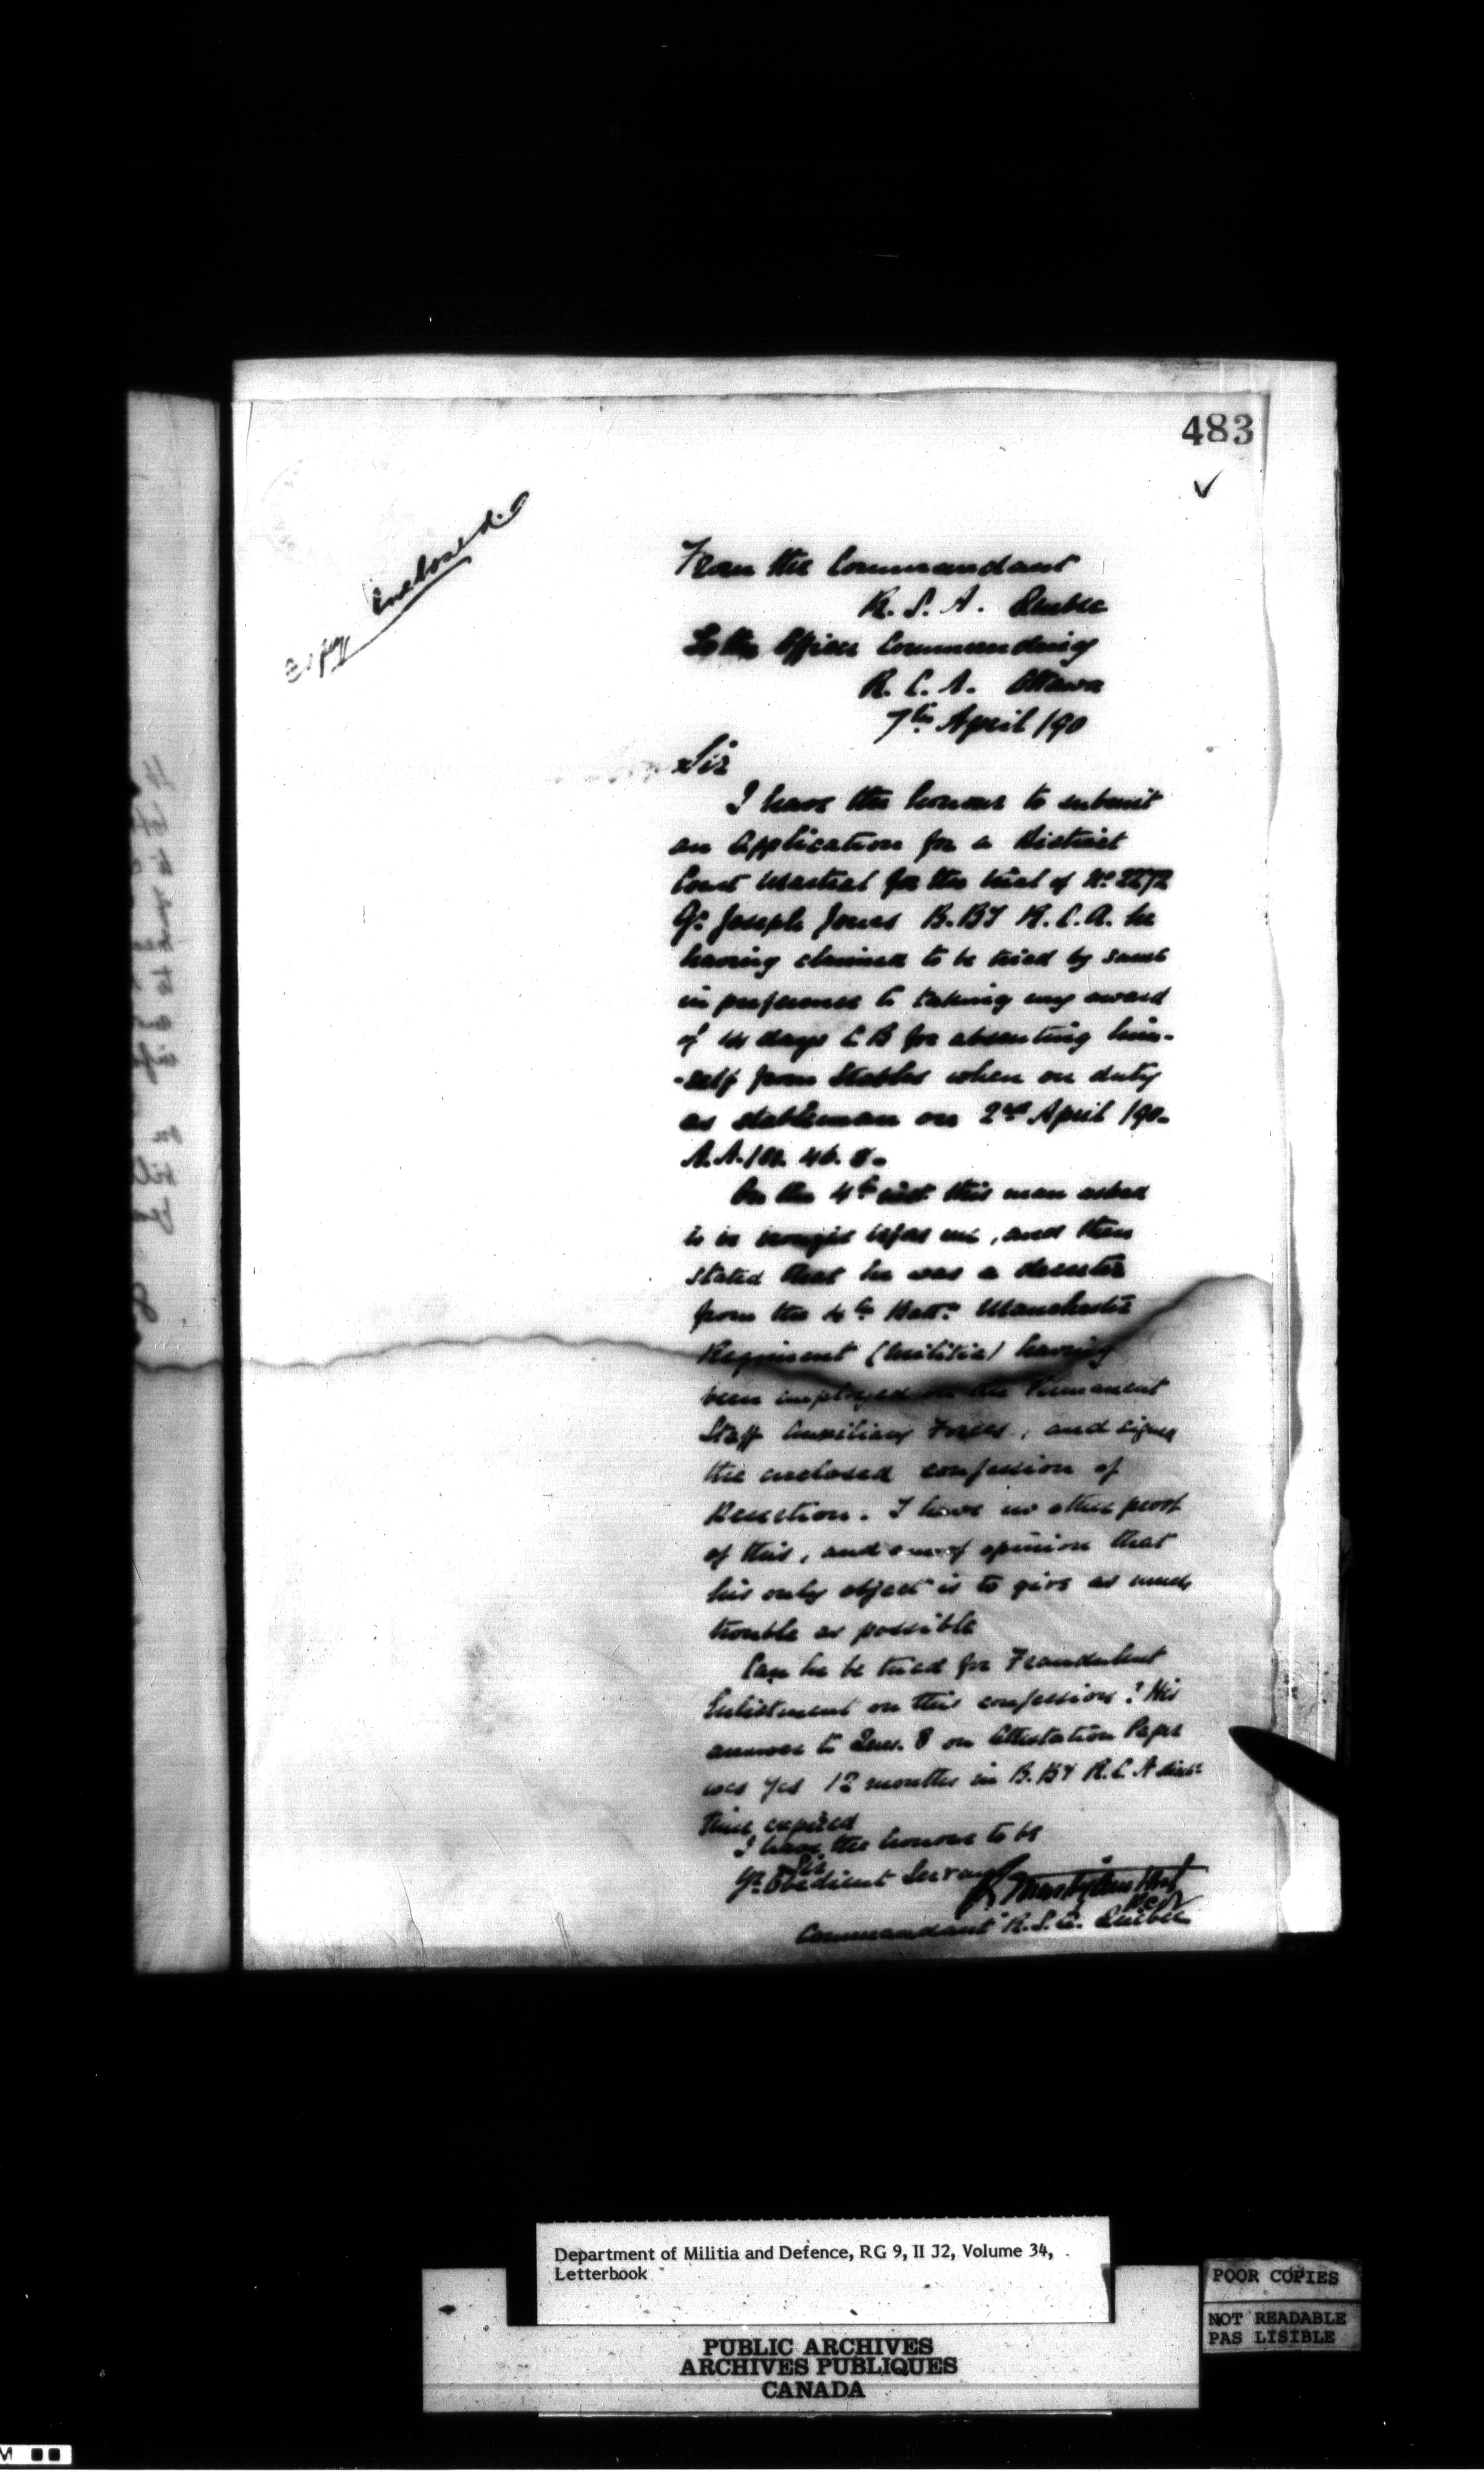 483
Enclosed.
From the Commandant
R. S. A. Quebec
To the Officer Commanding
R. C. A. Ottawa
7th April /90
Sir
I have the honour to submit
an application for a District
Court Martial for the trial of No. 2272
Gr. Joseph Jones B. By R. C. A. he
having claimed to be tried by same
in preference to taking my award
of 14 days C B for absenting him-
-self from Stables when on duty
as stableman on 2nd April /90.
A.A.
On the 4th inst this man asked
to be brought before me, and then
stated that he was a deserter
from the 4th Batt. Manchester
Regiment (Militia) having
been employed on the Permanent
Staff Auxiliary Forces, and signed
the enclosed confession of
Desertion. I have no other proof
of this, and am of opinion that
his only object is to give as much
trouble as possible
Can he be tried for Fraudulent
Enlistment on this confession? His
answer to Ques. 8 on Attestation Paper
was Yes 12 months in B. By R. C. A
time expired
I have the honour to be
Sir
Yr. Obedient Servant
Commandant R. S. A. Quebec
Department of Militia and Defence, RG 9, II J2, Volume 34,
Letterbook
POOR COPIES
NOT READABLE
PAS LISIBLE
PUBLIC ARCHIVES
ARCHIVES PUBLIQUES
CANADA